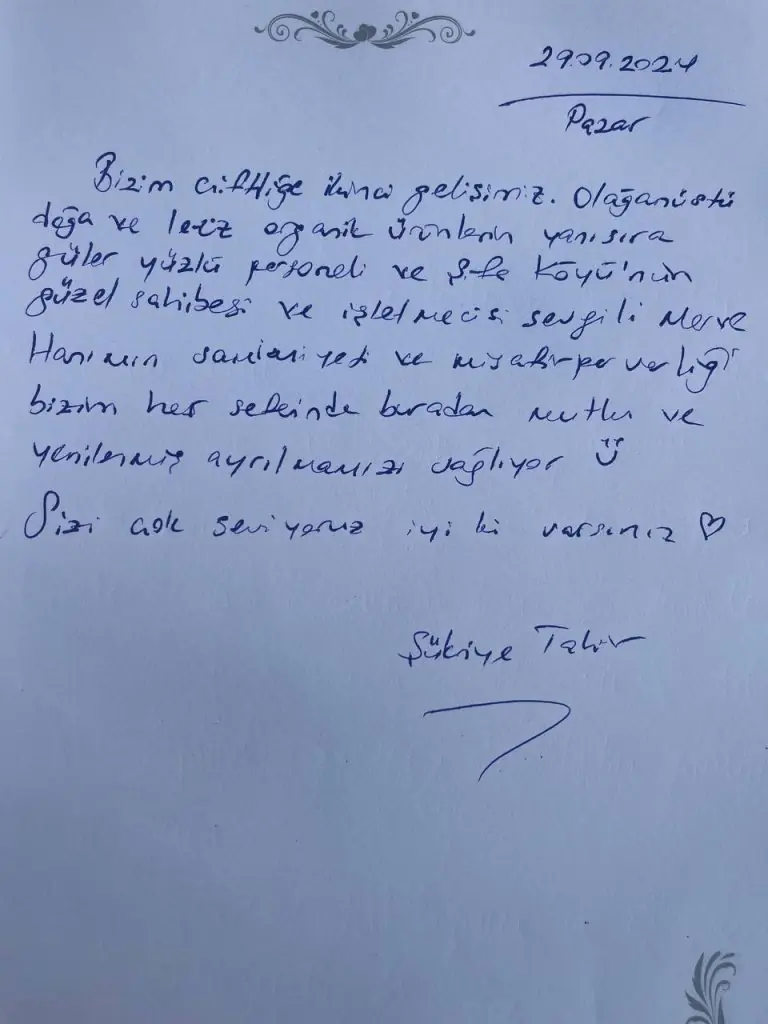 29.09.2024
Pazar
Bizim çiftliğe ikinci gelişimiz. Olağanüstü
doğa ve leziz organik ürünlerin yanısıra
güler yüzlü personeli ve Şifa Köyü'nün
güzel sahibesi ve işletmecisi sevgili Merve
Hanımın samimiyeti ve misafirperverliği
bizim her seferinde buradan mutlu ve
yenilenmiş ayrılmamızı sağlıyor ☺
Sizi çok seviyoruz iyi ki varsınız ♡
Şükriye Tahir